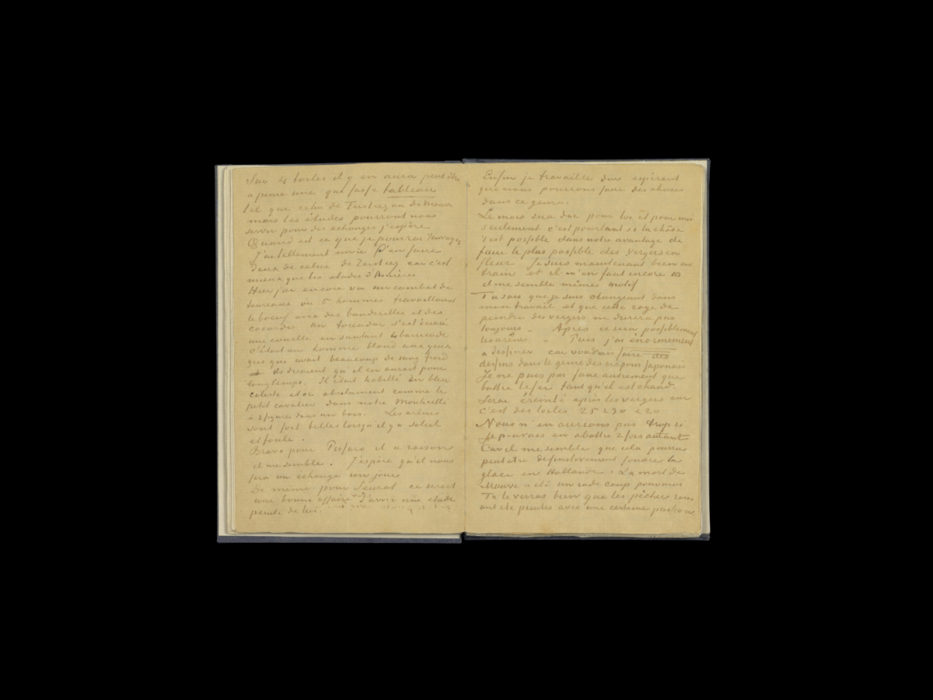 Sur 4 toiles il y en aura peut être
a peine une qui fasse tableau
tel que celui de Tersteeg ou de Mauve
mais les études pourront nous
servir pour des echanges j'espère
Quand est ce que je pourrai t'envoyer
J'ai tellement envie d'en faire
deux de celui de Tersteeg car c'est
mieux que les études d'Asnières
Hier j'ai encore vu un combat de
taureaux où 5 hommes travaillaient
le boeuf avec des banderilles et des
cocardes un toreador s'est écrasé
une couille en sautant la barricade
C'était un homme blond aux yeux
gris qui avait beaucoup de sang froid
ils disaient qu'il en aurait pour
longtemps. Il était habillé en bleu
celeste et or absolument comme le
petit cavalier dans notre Monticelli
a 3 figures dans un bois. Les arènes
sont fort belles lorsqu'il y a soleil
et foule.
Bravo pour Pissaro il a raison
il me semble. J'espère qu'il nous
fera un échange un jour
De même pour Seurat ce serait
une bonne affaire d'avoir une étude
peinte de lui.
Enfin je travaille dur espérant
que nous pourrons faire des choses
dans ce genre.
Le mois sera dur pour toi et pour moi
seulement c'est pourtant si la chose
t'est possible dans notre avantage de
faire le plus possible des vergers en
fleur Je suis maintenant bien en
train et il m'en faut encore 10
il me semble mêmes motif
Tu sais que je suis changeant dans
mon travail et que cette rage de
peindre des vergers ne durera pas
toujours – Après ce sera possiblement
les arènes. – Puis j'ai énormement
a dessiner car voudrais faire des
dessins dans le genre des crepons japonais
Je ne puis pas faire autrement que
battre le fer tant qu'il est chaud.
Serai éreinté après les vergers car
c'est des toiles 25 & 30 & 20
Nous n'en aurions pas trop si
je pouvais en abattre 2 fois autant
Car il me semble que cela pourra
peut etre definitivement fondre la
glace en Hollande. La mort de
Mauve a été un rude coup pour moi
Tu le verras bien que les pêchers roses
ont été peints avec une certaine passion